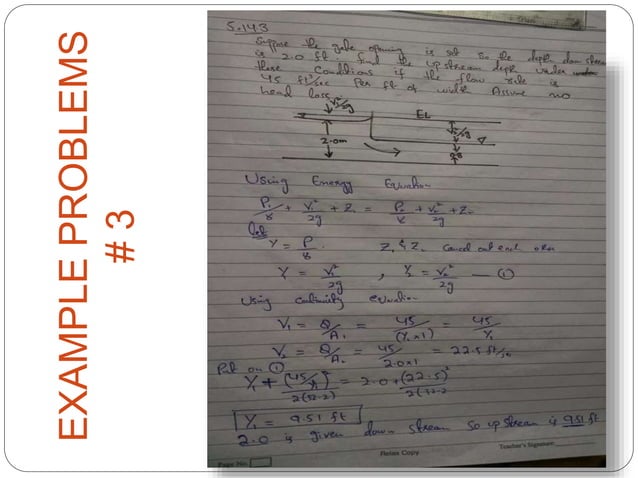 EXAMPLE PROBLEMS
# 3
5.14.3
Suppose the gate opening is set so the depth down stream
is 2.0 ft. find the upstream depth under
these Conditions if the flow rate is
45 ft³/sec Per ft of width Assume no
head loss.
V₁²/2g
EL
2.0m
V₂²/2g
Using Energy Equation
P₁/γ + V₁²/2g + Z₁ = P₂/γ + V₂²/2g + Z₂
let
Y = P/γ . Z₁ & Z₂ Cancel out each other
Y = V₁²/2g , Y₂ = V₂²/2g — ①
Using Continuity equation
V₁ = Q/A₁ = 45/(Y₁×1) = 45/Y₁
V₂ = Q/A₂ = 45/2.0×1 = 22.5 ft/sec
Put on ①
Y₁ + (45/Y₁)²/2(32.2) = 2.0 + (22.5)²/2(32.2
Y₁ = 9.51 ft
2.0 is given down stream so upstream is 9.51 ft
Relax Copy
Teacher's Signature
Page No.